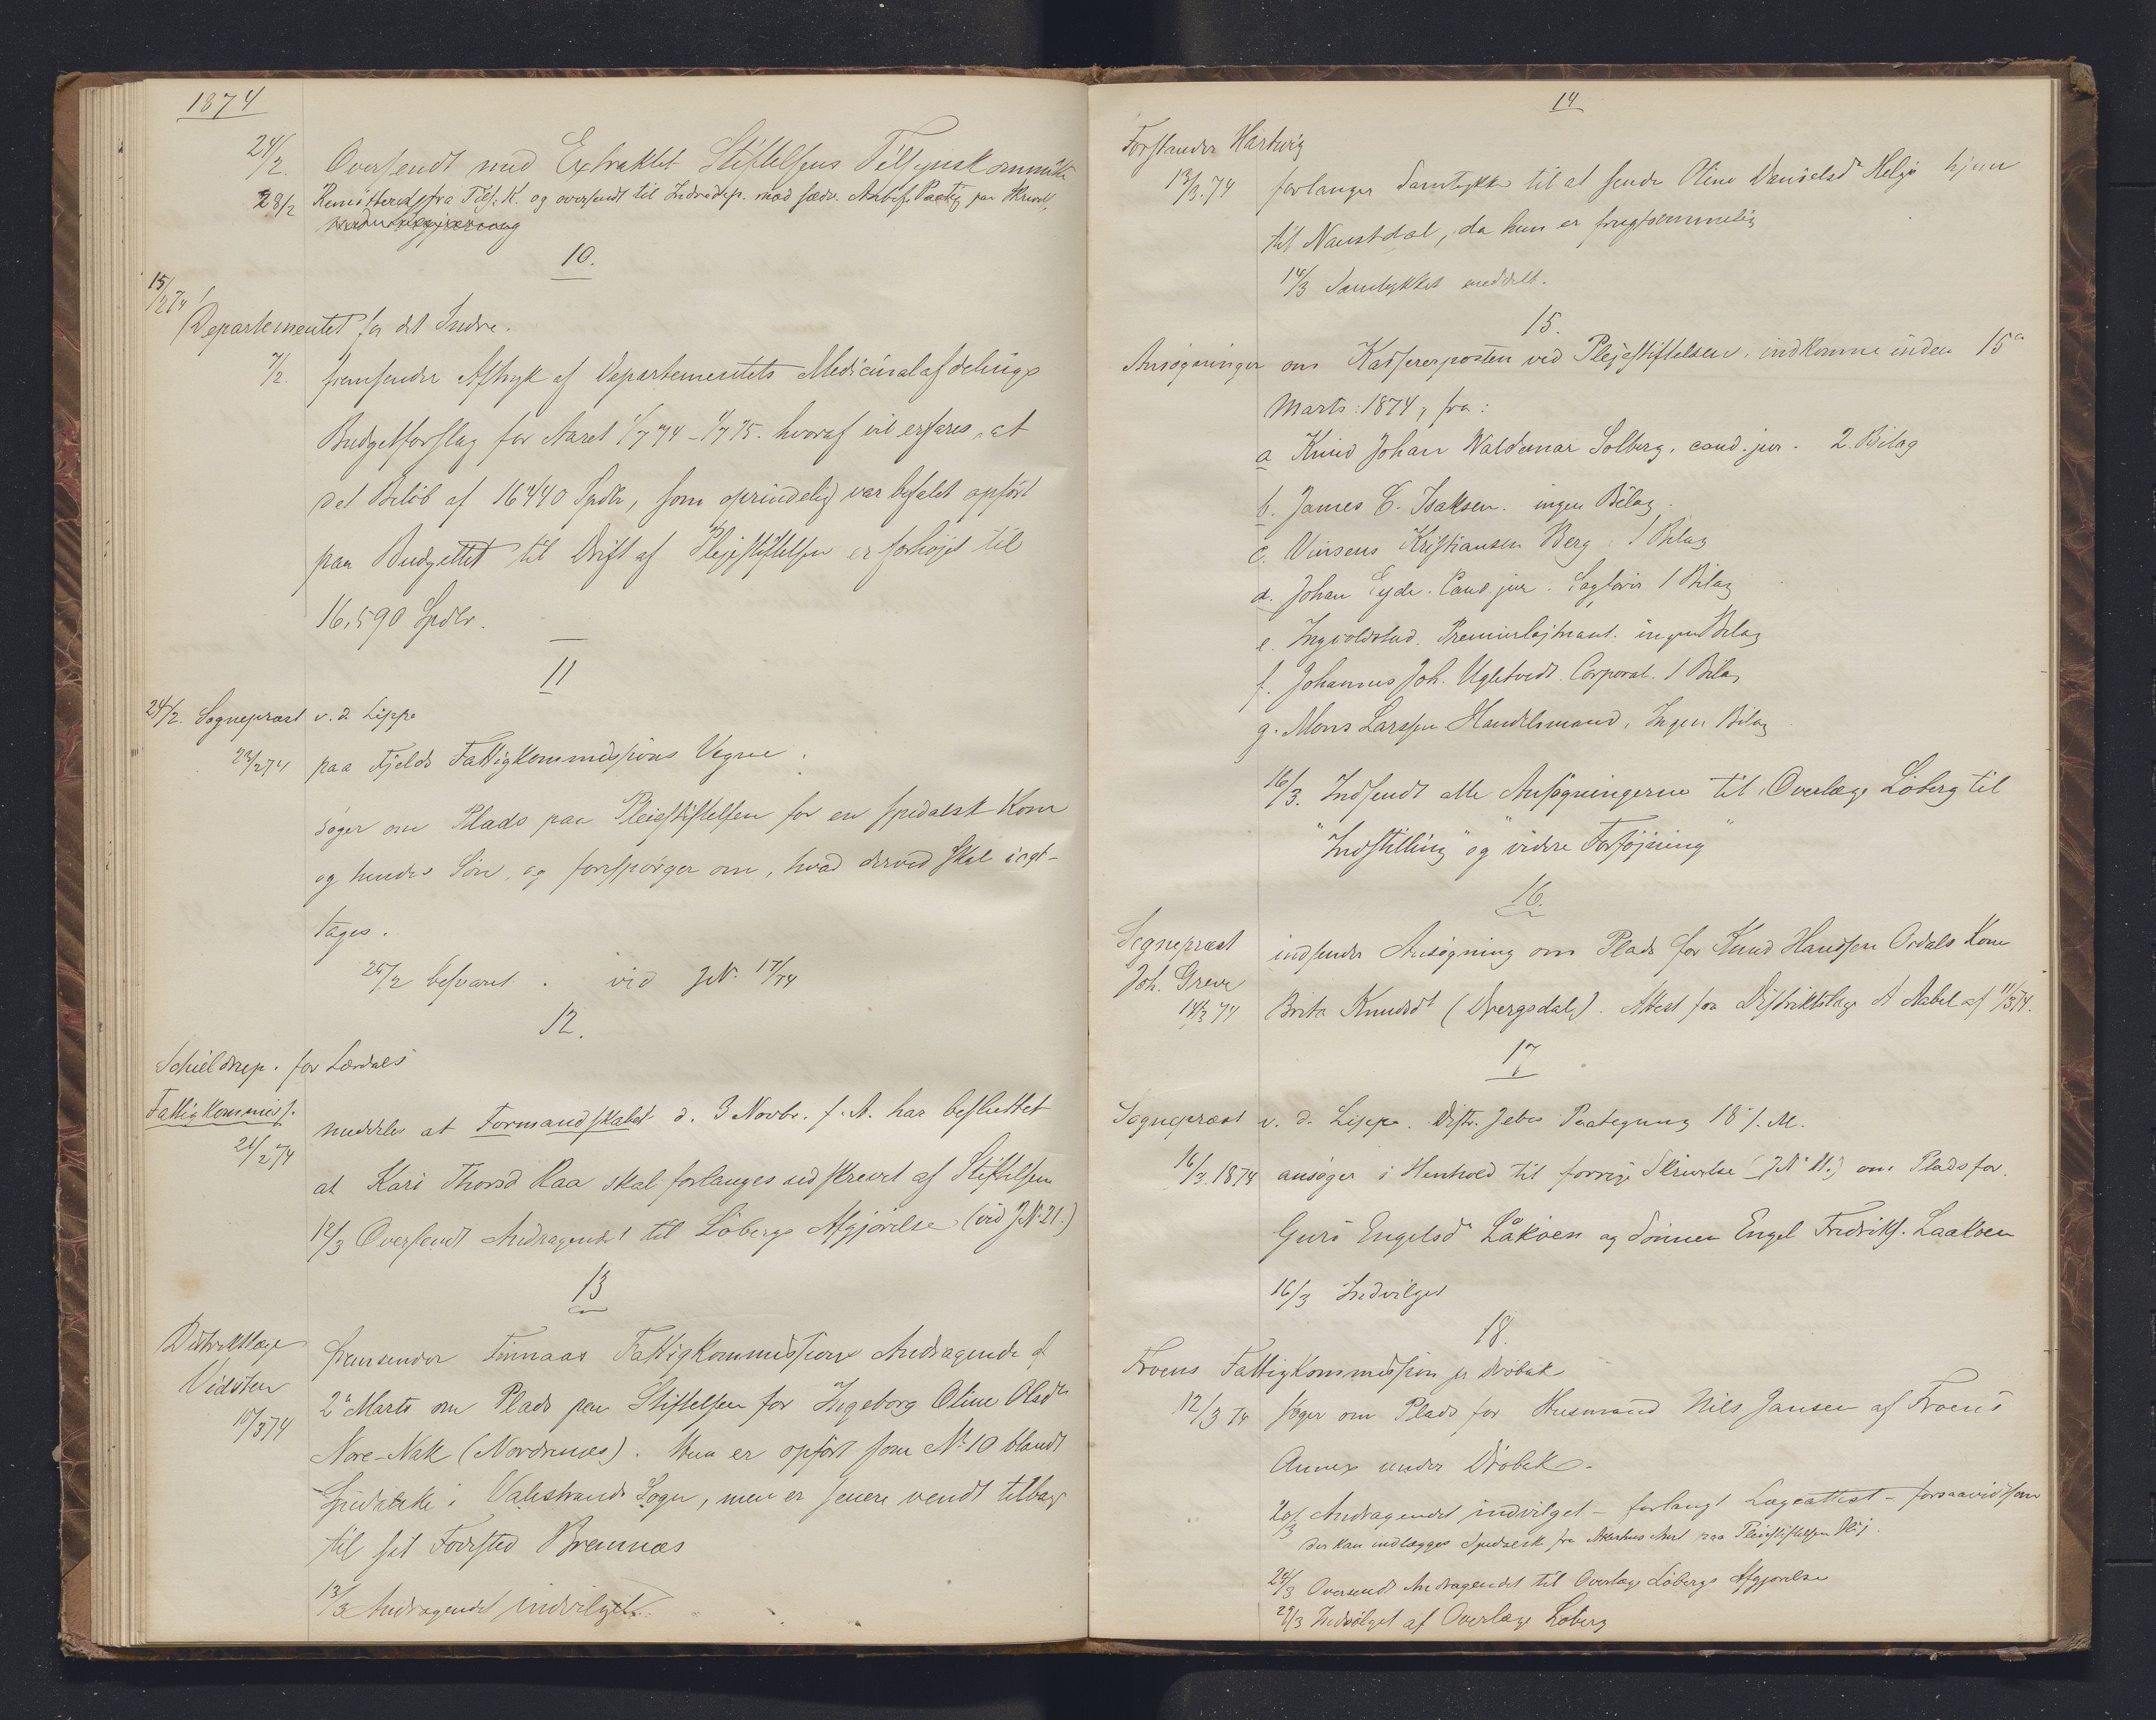 1874
24/2. Oversendt med Extraktet Stiftelsens Tilsynskommitte
28/2 Remitteret fra Tils. K. og oversendt til Indredep. med sædv. Paateg paa Skrivels,
10.
15/2 74
Departementet for det Indre.
7/2. fremsender Aftryk af Departementets Medicinalafdelings
Budgetforslag for Aaret 1/7 74 - 1/7 75. hvoraf vil erfares, at
det Beløb af 16440 Spdlr, som oprindelig var befalet opført
paa Budgettet til Drift af Plejestiftelsen er forhøjet til
16,590 Spdlr.
11
24/2. Sognepræst v. d. Lippe
23/2 74 paa Fjelds Fattigkommissions Vegne.
søger om Plads paa Pleiestiftelsen for en spedalsk Kone
og hendes Søn, og forespørger om, hvad derved skal iagt-
tages.
25/2 besvaret. vid JN. 17/74
12.
Schieldrup. for Lærdals
Fattigkommiss.
21/2 74
meddeles at Formandskabet d. 3 Novbr. f. A. har besluttet
at Kari Thorsd Raa skal forlanges udskrevet af Stiftelsen
12/3 Oversendt Andragendet til Løbergs Afgjørelse (vid JN. 21.)
13
Distriktslæge
Vidsten
10/3 74
fremsender Finnaas Fattigkommissions Andragende af
2 Marts om Plads paa Stiftelsen for Ingeborg Oline Olsdtr
Nore-Nak (Nordnæs). Hun er opført som No. 10 blandt
Spedalske i Valestrands Sogn, men er senere vendt tilbage
til sit Fødested Bremnæs
13/3 Andragendet indvilget.
14
Forstander Hartwig
13/3. 74 forlanger Samtykke til at sende Oline Danielsd Helgø hjem
til Naustdal, da hun er frugtsommelig
14/3 Samtykket meddelt.
15.
Ansøgninger om Kassererposten ved Plejestiftelsen, indkomne inden 15
Marts 1874, fra:
a Knud Johan Waldemar Solberg, cand. jur. 2. Bilag
b. James C. Isaksen. ingen Bilag.
c. Vinsens Kristiansen Berg. 1 Bilag
d. Johan Eyde. Cand. jur. Sagfører 1 Bilag
e. Ingvoldstad. Premierløjtnant. ingen Bilag
f. Johannes Joh. Ugletvedt. Corporal. 1 Bilag
g. Mons Larssen Handelsmand. Ingen Bilag
16/3. Indsendt alle Ansøgningerne til Overlæge Løberg til
"Indstilling" og "videre Forføjning"
16.
Sognepræst
Joh. Greve
14/3 74
indsender Ansøgning om Plads for Knud Hanssen Ordals Kone
Brita Knudsdt (Dvergsdal). Attest fra Distriktslæge A Aabel af 11/3 74.
17
Sognepræst v. d. Lippe. Distr. Jebes Paategning 18 f. M.
16/3. 1874 ansøger i Henhold til forrige Skrivelse (JN. 11.) om Plads for
Guri Engelsd Låkøen og Sønnen Engel Fredriks. Laakøen
16/3 Indvilget
18.
Froens Fattigkommission pr Drøbak
12/3 74 søger om Plads for Husmand Nils Jansen af Froens
Annex under Drøbak.
20/3 Andragendet indvilget - forlangt Lægeattest - forsaavidt som
der kan indlægges Spedalsk fra Akershus Amt paa Pleiestiftelsen No. 1.
24/3 Oversendt Andragendet til Overlæge Løbergs Afgjørelse
29/3 Indvilget af Overlæge Løberg